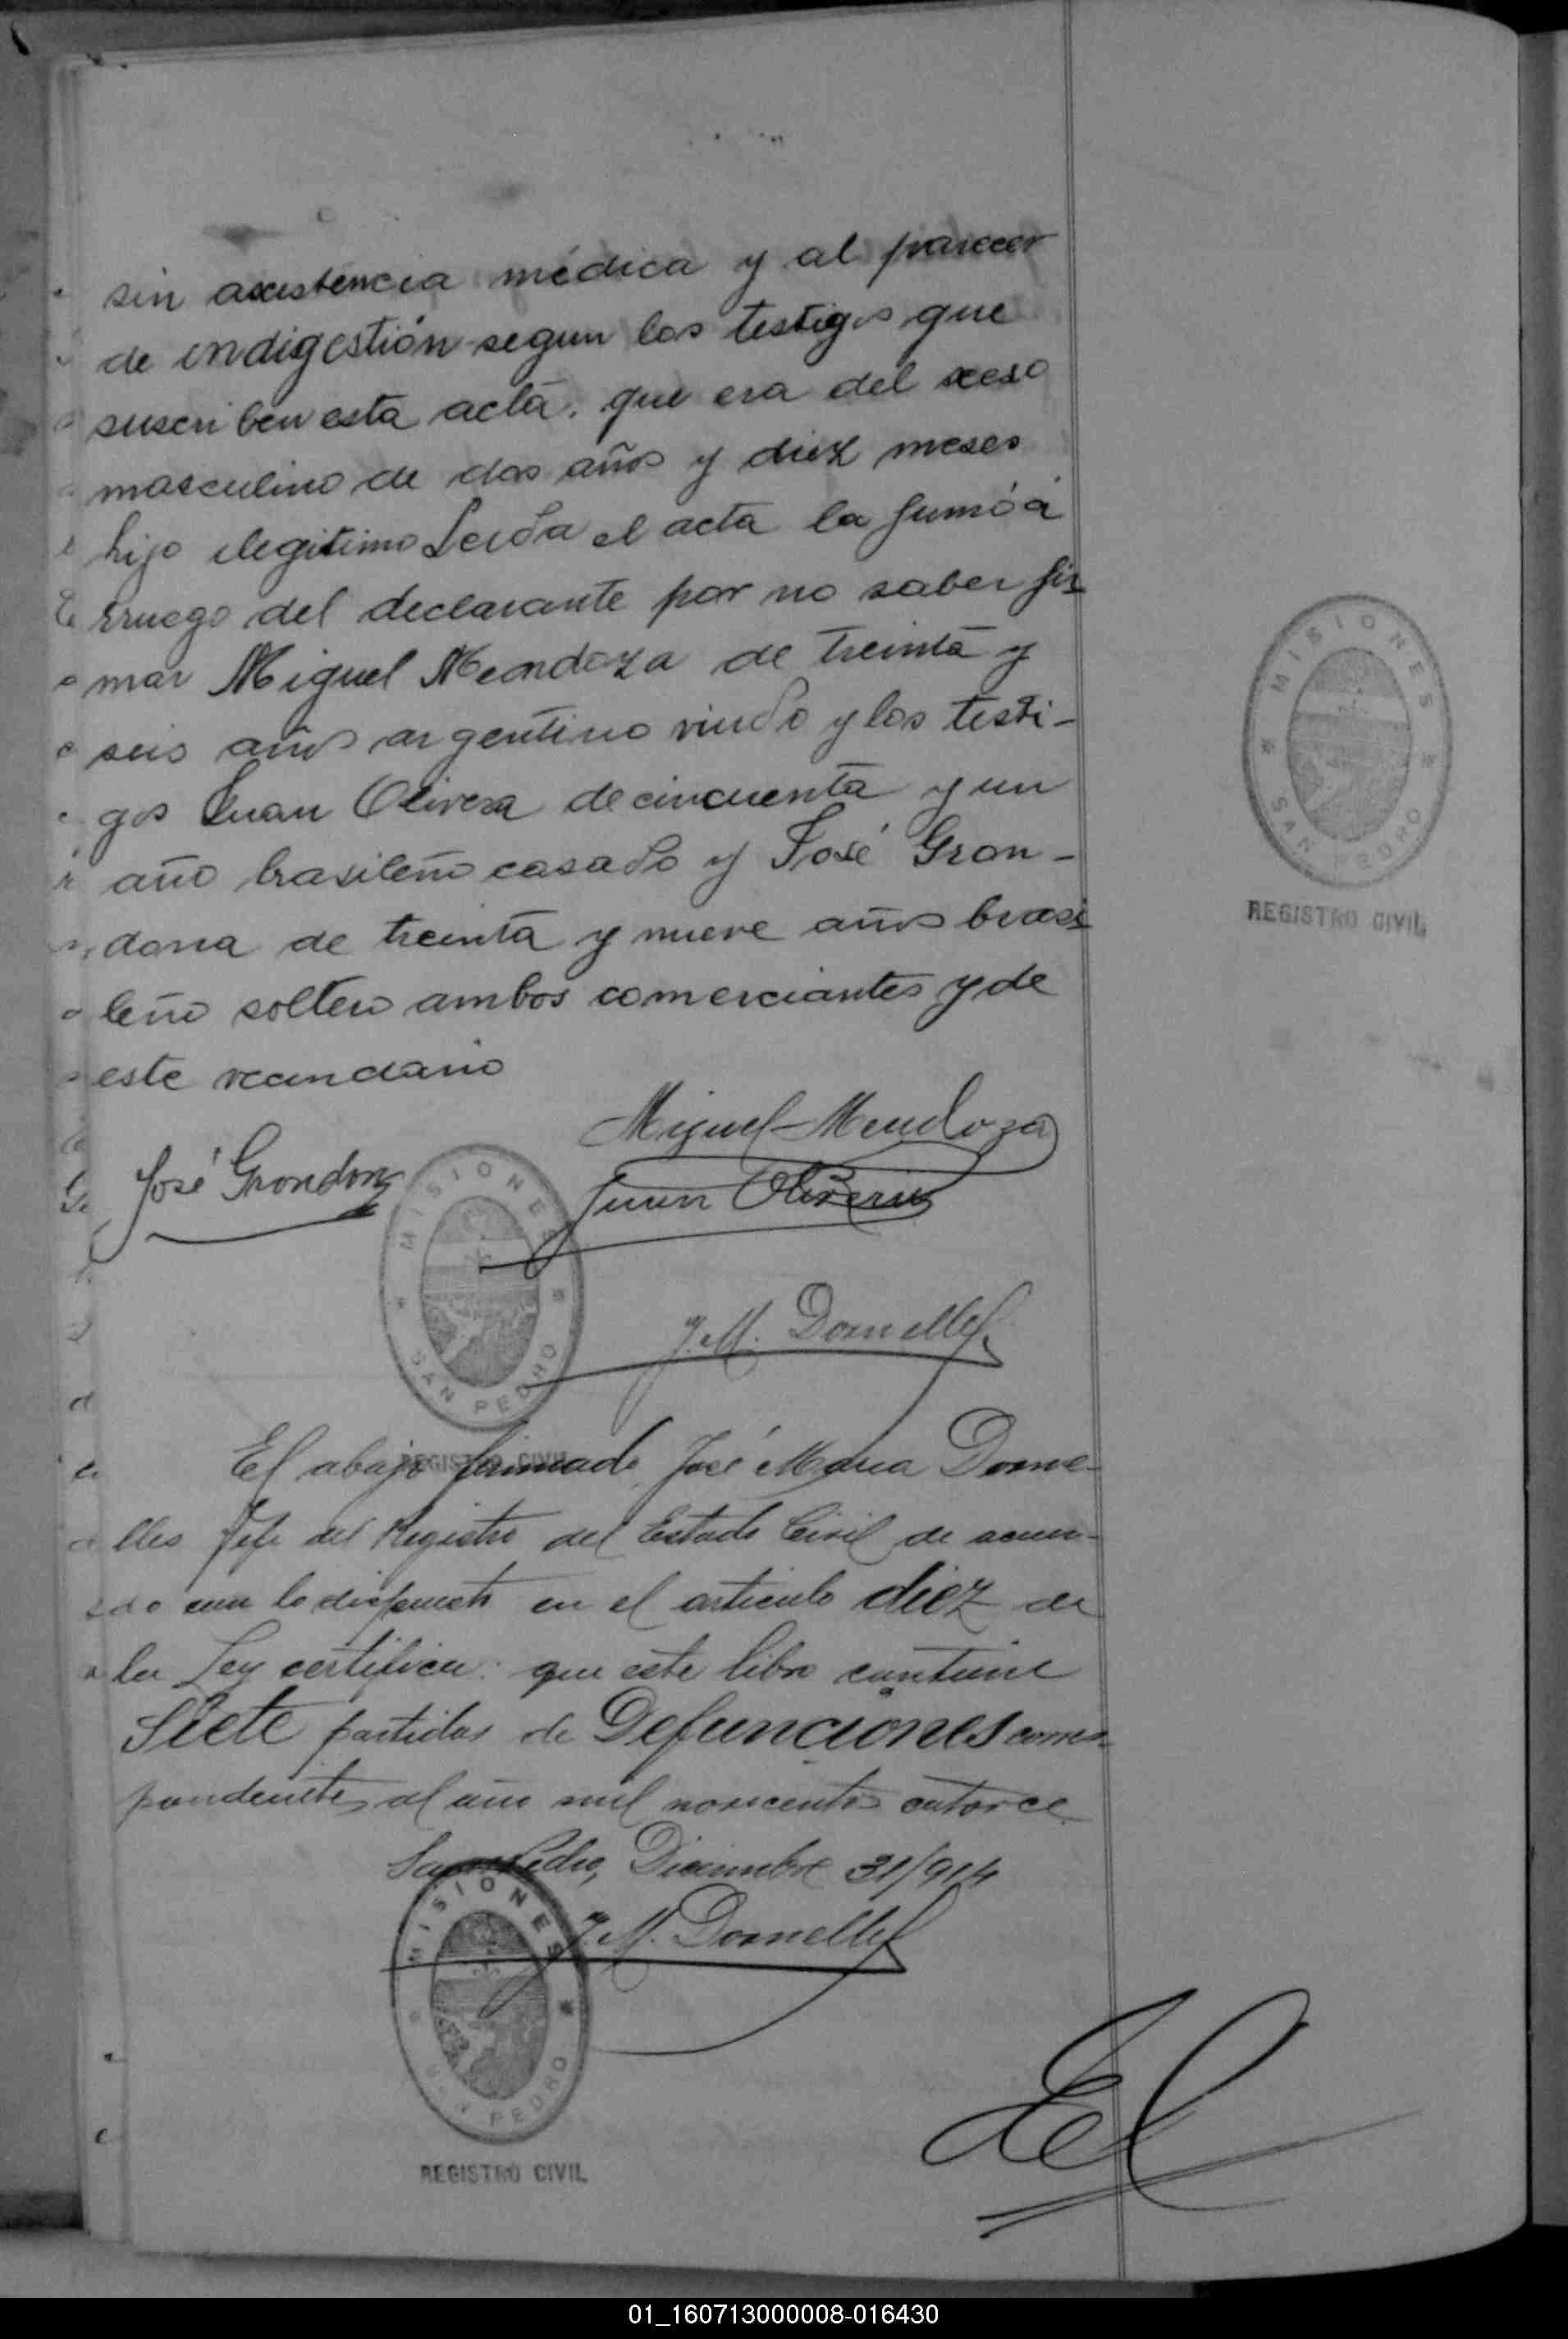 sin axistencia médica y al parecer
de indigestión segun los testigos que
suscriben esta acta, que era del sexso
masculino de dos años y diez meses
hijo ilegitimo Leida el acta la firmó á
rruego del declarante por no saber fir-
mar Miguel Mendoza de treinta y
seis años argentino viudo y los testi-
gos Juan Olivera de cincuenta y un
año brasileño casado y José Gron-
dona de treinta y nueve años brasi-
leño soltero ambos comerciantes y de
este vecindario
Miguel Mendoza
José Grondona
Juan Olivera
J. M. Dornelles
MISIONES
SAN PEDRO
REGISTRO CIVIL
MISIONES
SAN PEDRO
REGISTRO CIVIL
El abajo firmado José Maria Dorne-
lles Jefe del Registro del Estado Civil de acuer-
do con lo dispuesto en el articulo diez de
la Ley certifica: que este libro contiene
Siete partidas de Defunciones corres-
pondientes al año mil novecientos catorce
San Pedro, Diciembre 31/914
J. M. Dornelles
MISIONES
SAN PEDRO
REGISTRO CIVIL
01_160713000008-016430